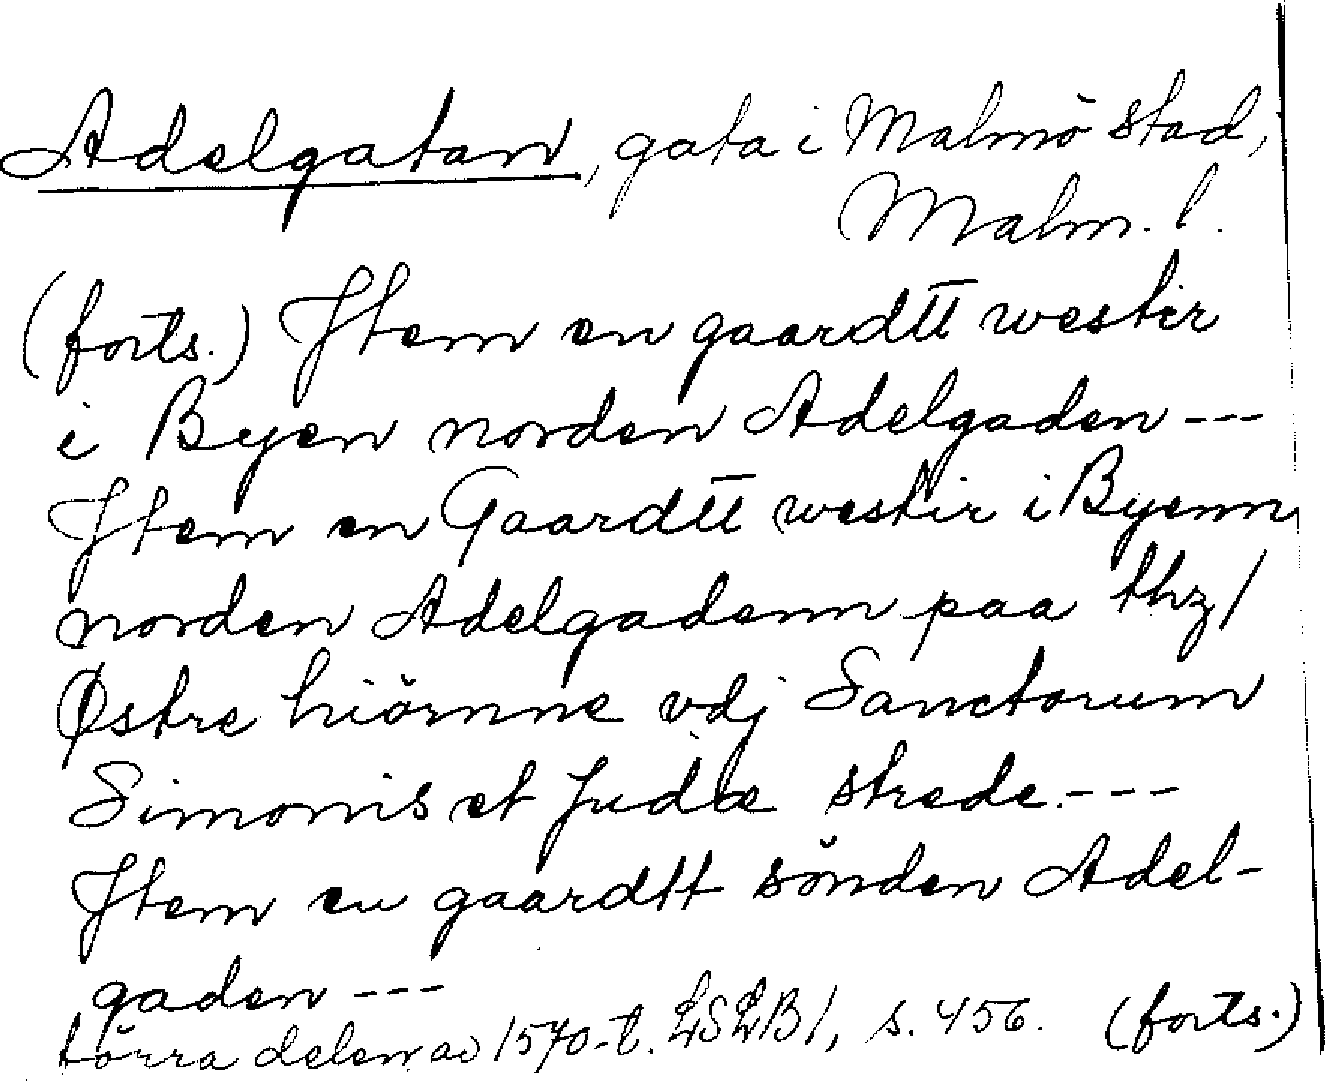 Adelgatan, gata i Malmö stad,
Malm. l.
(forts.) Jtem en gaardtt westir
i Byen norden Adelgaden ---
Jtem en Gaardtt westir i Byenn
norden Adelgadenn paa thz/
Østre hiörnne vdj Sanctorum
Simonis et Judæ strede. ---
Jtem en gaardtt sönden Adel-
gaden ---
förra delen av 1570-t. LSLB1, s. 456. (forts.)